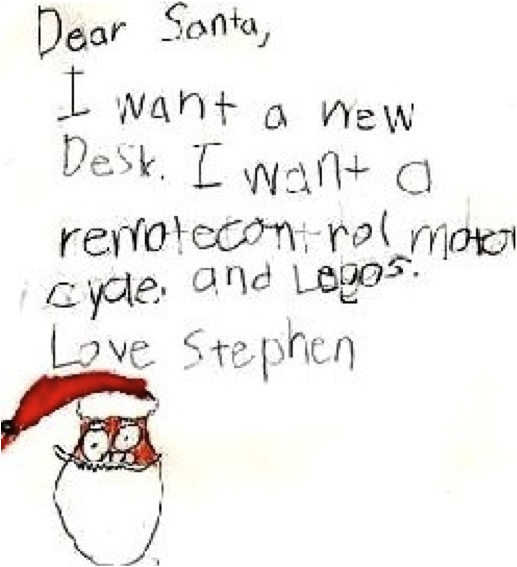 Dear Santa,
I want a new
Desk. I want a
remotecontrol motor
cycle. and Legos.
Love Stephen